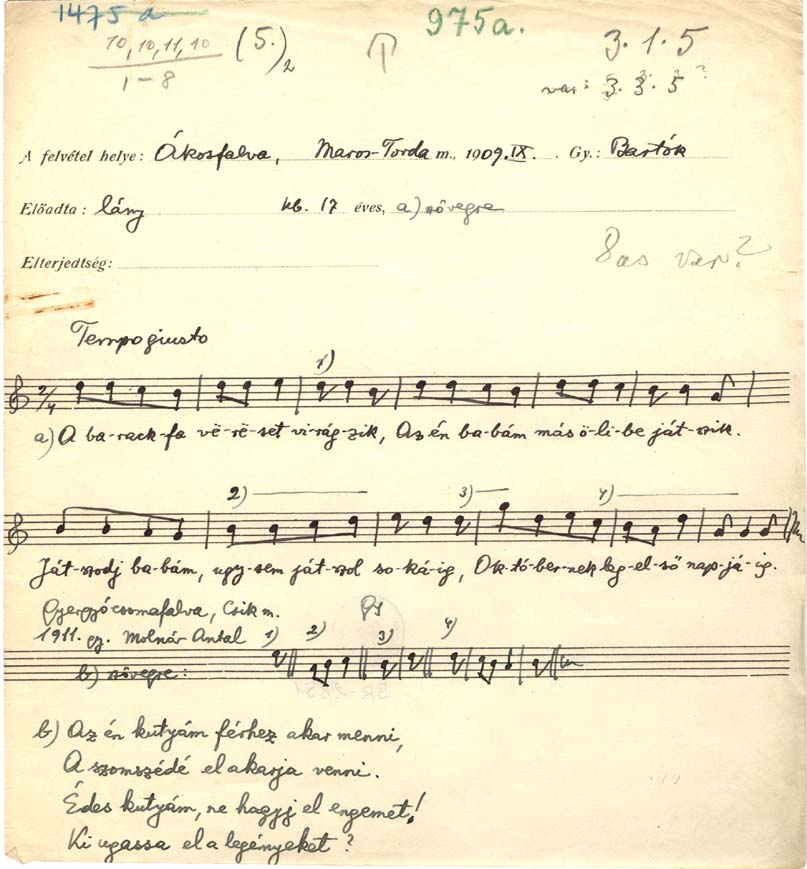 1475 a
975a.
10, 10, 11, 10 (5.)2
1-8
3. 1. 5
var: 3. 3. 5 ?
A felvétel helye: Ákosfalva, Maros-Torda m., 1909. IX. Gy.: Bartók
Előadta: lány kb. 17 éves, a.) szövegre
Elterjedtség:
8as var.?
Tempo giusto
1)
2/4
a) A ba-rack-fa vë-rë-set vi-rág-zik, Az én ba-bám más ö-li-be ját-szik.
2) 3) 4)
Ját-szodj ba-bám, ugy-sem ját-szol so-ká-ig, Ok-tó-ber-nek leg-el-ső nap-já-ig.
Gyergyócsomafalva, Csik m.
1911. gy. Molnár Antal 1) 2) 3) 4)
b) szövegre:
b) Az én kutyám férhez akar menni,
A szomszédé el akarja venni.
Édes kutyám, ne hagyj el engemet!
Ki ugassa el a legényeket?